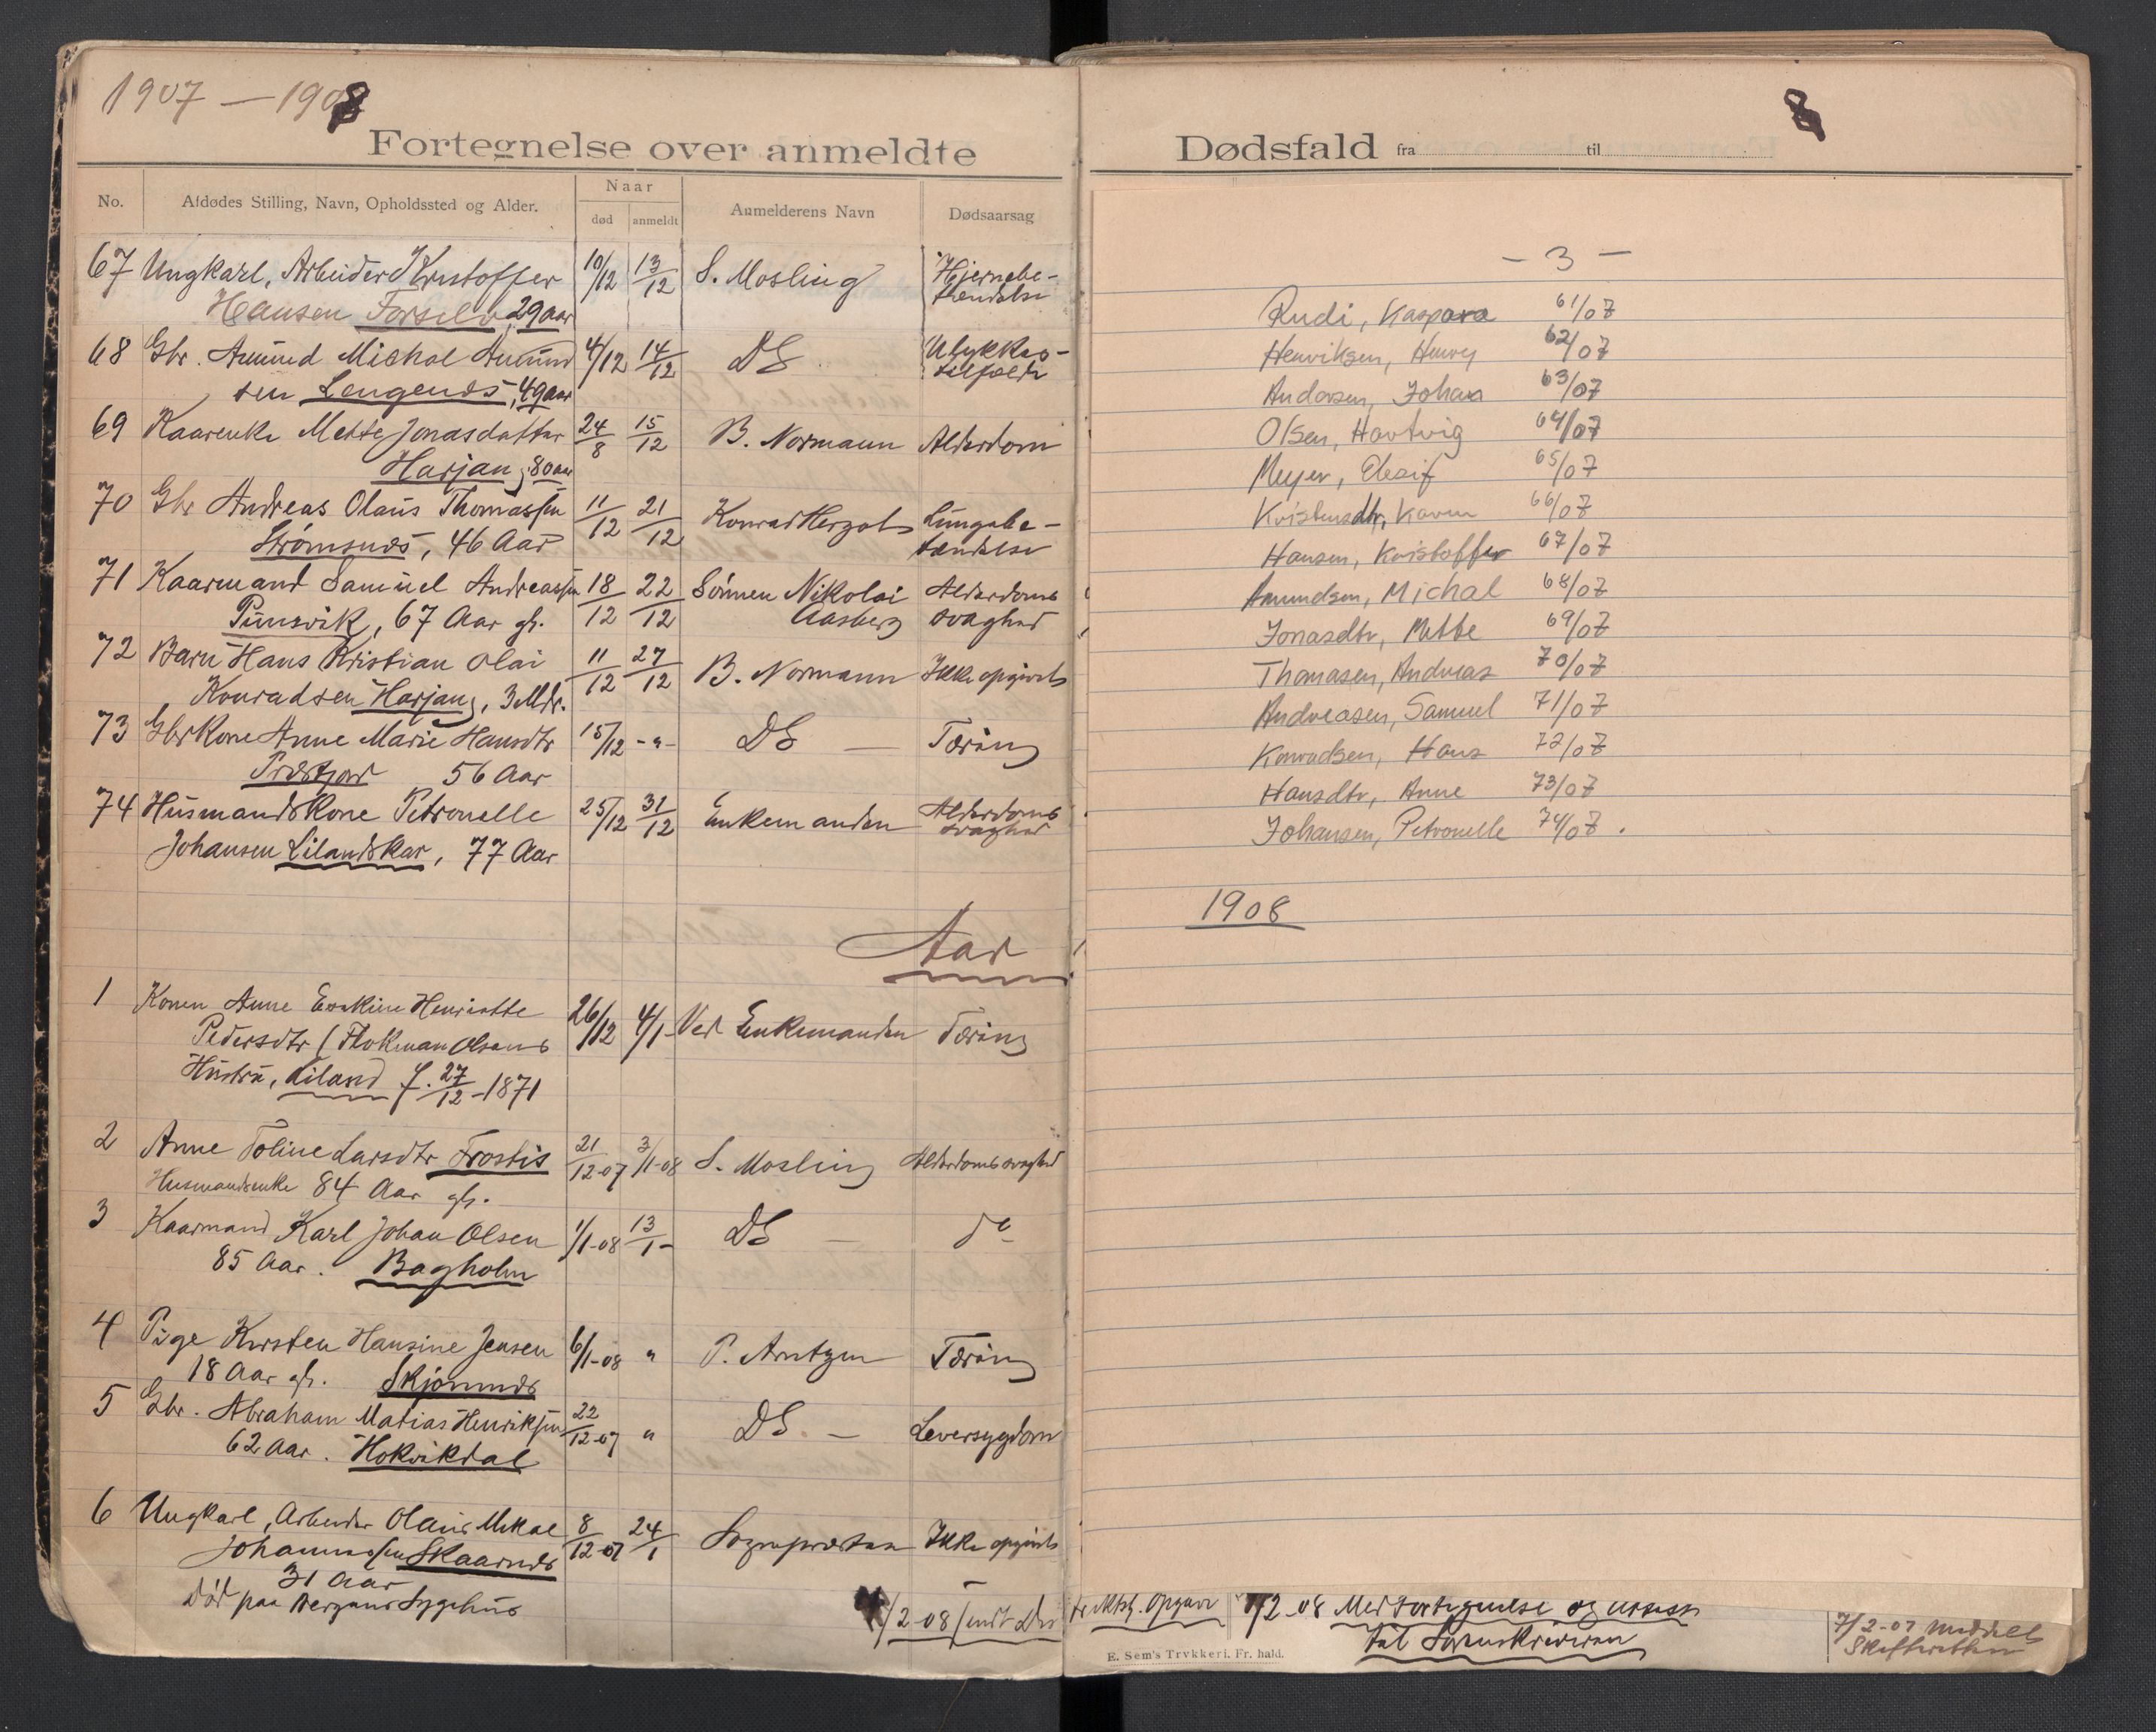 1907 — 1908
Fortegnelse over anmeldte
No. Afdødes Stilling, Navn, Opholdssted og Alder. Naar død anmeldt Anmelderens Navn Dødsaarsag
67 Ungkarl, Arbeider Kristoffer 10/12 13/12 S. Mosling Hjernebe-
Hansen Forselv, 29 aar tændelse
68 Gbr. Amund Michal Amund 4/12 14/12 DS Ulykkes-
sen Lengenes, 49 aar tilfælde
69 Kaarenke Mette Jonasdatter 24/8 15/12 B. Normann Alderdom
Harjang, 80 aar
70 Gbr Andreas Olaus Thomassen 11/12 21/12 Konrad Herzols Lungebe-
Strømsnes, 46 Aar tændelse
71 Kaarmand Samuel Andreassen 18/12 22/12 Sønnen Nikolai Alderdoms
Punsvik, 67 Aar gl. Aasberg svaghed
72 Barn Hans Kristian Olai 11/12 27/12 B. Normann Ikke opgivet
Konradsen Harjang, 3 Mdr.
73 Gbrkone Anne Marie Hansdtr 15/12 -"- DS — Tæring
Præstjord 56 Aar
74 Husmandskone Petronelle 25/12 31/12 Enkemanden Alderdoms
Johansen Lilandskar, 77 Aar svaghed
Aar
1 Konen Anne Erekine Henriette 26/12 4/1 Ved Enkemanden Tæring
Pedersdtr ( Olsens
Hustru, Liland f. 27/12-1871
2 Anne Toline Larsdtr Frostis 21/12-07 3/1-08 S. Mosling Alderdomssvaghed
Husmandsenke 84 Aar gl.
3 Kaarmand Karl Johan Olsen 1/1-08 13/1- DS — do
85 Aar. Bagholm
4 Pige Kirsten Hansine Jensen 6/1-08 " P. Arntzen Tæring
18 Aar gl. Skjomnes
5 Gbr. Abraham Matias Henriksen 22/12-07 " DS. — Leversygdom
62 Aar. Hokvikdal
6 Ungkarl, Arbeider Olaus Mikal 8/12-07 24/1 Sognepræsten Ikke opgivet
Johannessen Skaarnes
31 Aar
død paa Bergens Sygehus
/2-08
8
Dødsfald fra til
- 3 -
Rudi, Kaspara 61/07
Henriksen, Henry 62/07
Andersen, Johan 63/07
Olsen, Hartvig 64/07
Meyer, 65/07
Kristensdtr, Karen 66/07
Hansen, Kristoffer 67/07
Amundsen, Michal 68/07
Jonasdtr, Mette 69/07
Thomasen, Andreas 70/07
Andreasen, Samuel 71/07
Konradsen, Hans 72/07
Hansdtr, Anne 73/07
Johansen, Petronelle 74/07.
1908
Opgave 7/2-08 Med Fortegnelse og
til Sorenskriveren
7/2-07 Meddelt
Skifteretten
E. Sem's Trykkeri, Fr. hald.